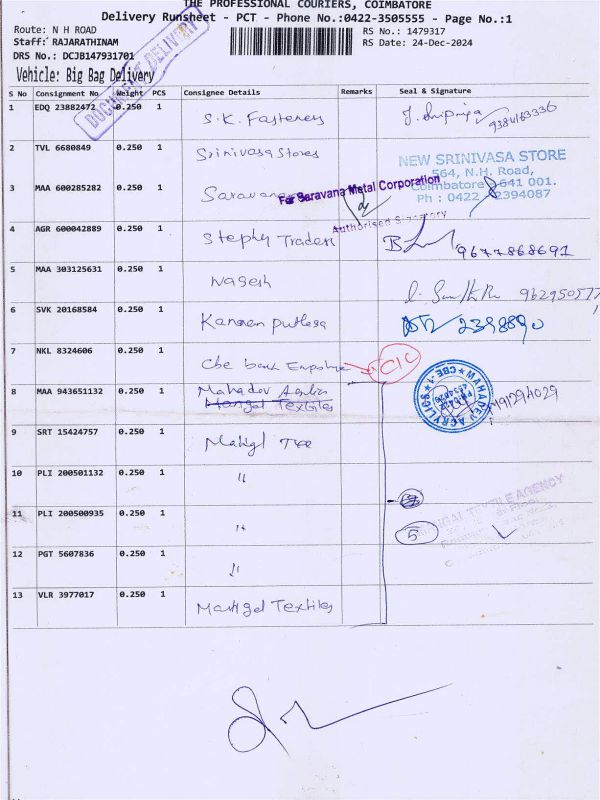 THE PROFESSIONAL COURIERS, COIMBATORE
Delivery Runsheet - PCT - Phone No.:0422-3505555 - Page No.:1
Route: N H ROAD
RS No.: 1479317
Staff: RAJARATHINAM
RS Date: 24-Dec-2024
DRS No.: DCJB147931701
Vehicle: Big Bag Delivery
DOCUMENT DELIVERY
S No Consignment No Weight PCS Consignee Details Remarks Seal & Signature
1 EDQ 23882472 0.250 1 S.K. Fasteners
2 TVL 6680849 0.250 1 Srinivasa Stores
NEW SRINIVASA STORE
564, N.H. Road,
Coimbatore - 641 001.
Ph : 0422 - 2394087
3 MAA 600285282 0.250 1 Saravana
For Saravana Metal Corporation
Authorised Signatory
4 AGR 600042889 0.250 1 Stephy Traders 9677868691
5 MAA 303125631 0.250 1 Nagesh
6 SVK 20168584 0.250 1 2398890
7 NKL 8324606 0.250 1 Cbe bank
8 MAA 943651132 0.250 1 Mahadev
Mangal Textiles
MAHADEV ACRYLICS CBE-1
9 SRT 15424757 0.250 1
10 PLI 200501132 0.250 1 "
11 PLI 200500935 0.250 1 " 5
MANGAL TEXTILE AGENCY
12 PGT 5607836 0.250 1 "
13 VLR 3977017 0.250 1 Mangal Textiles